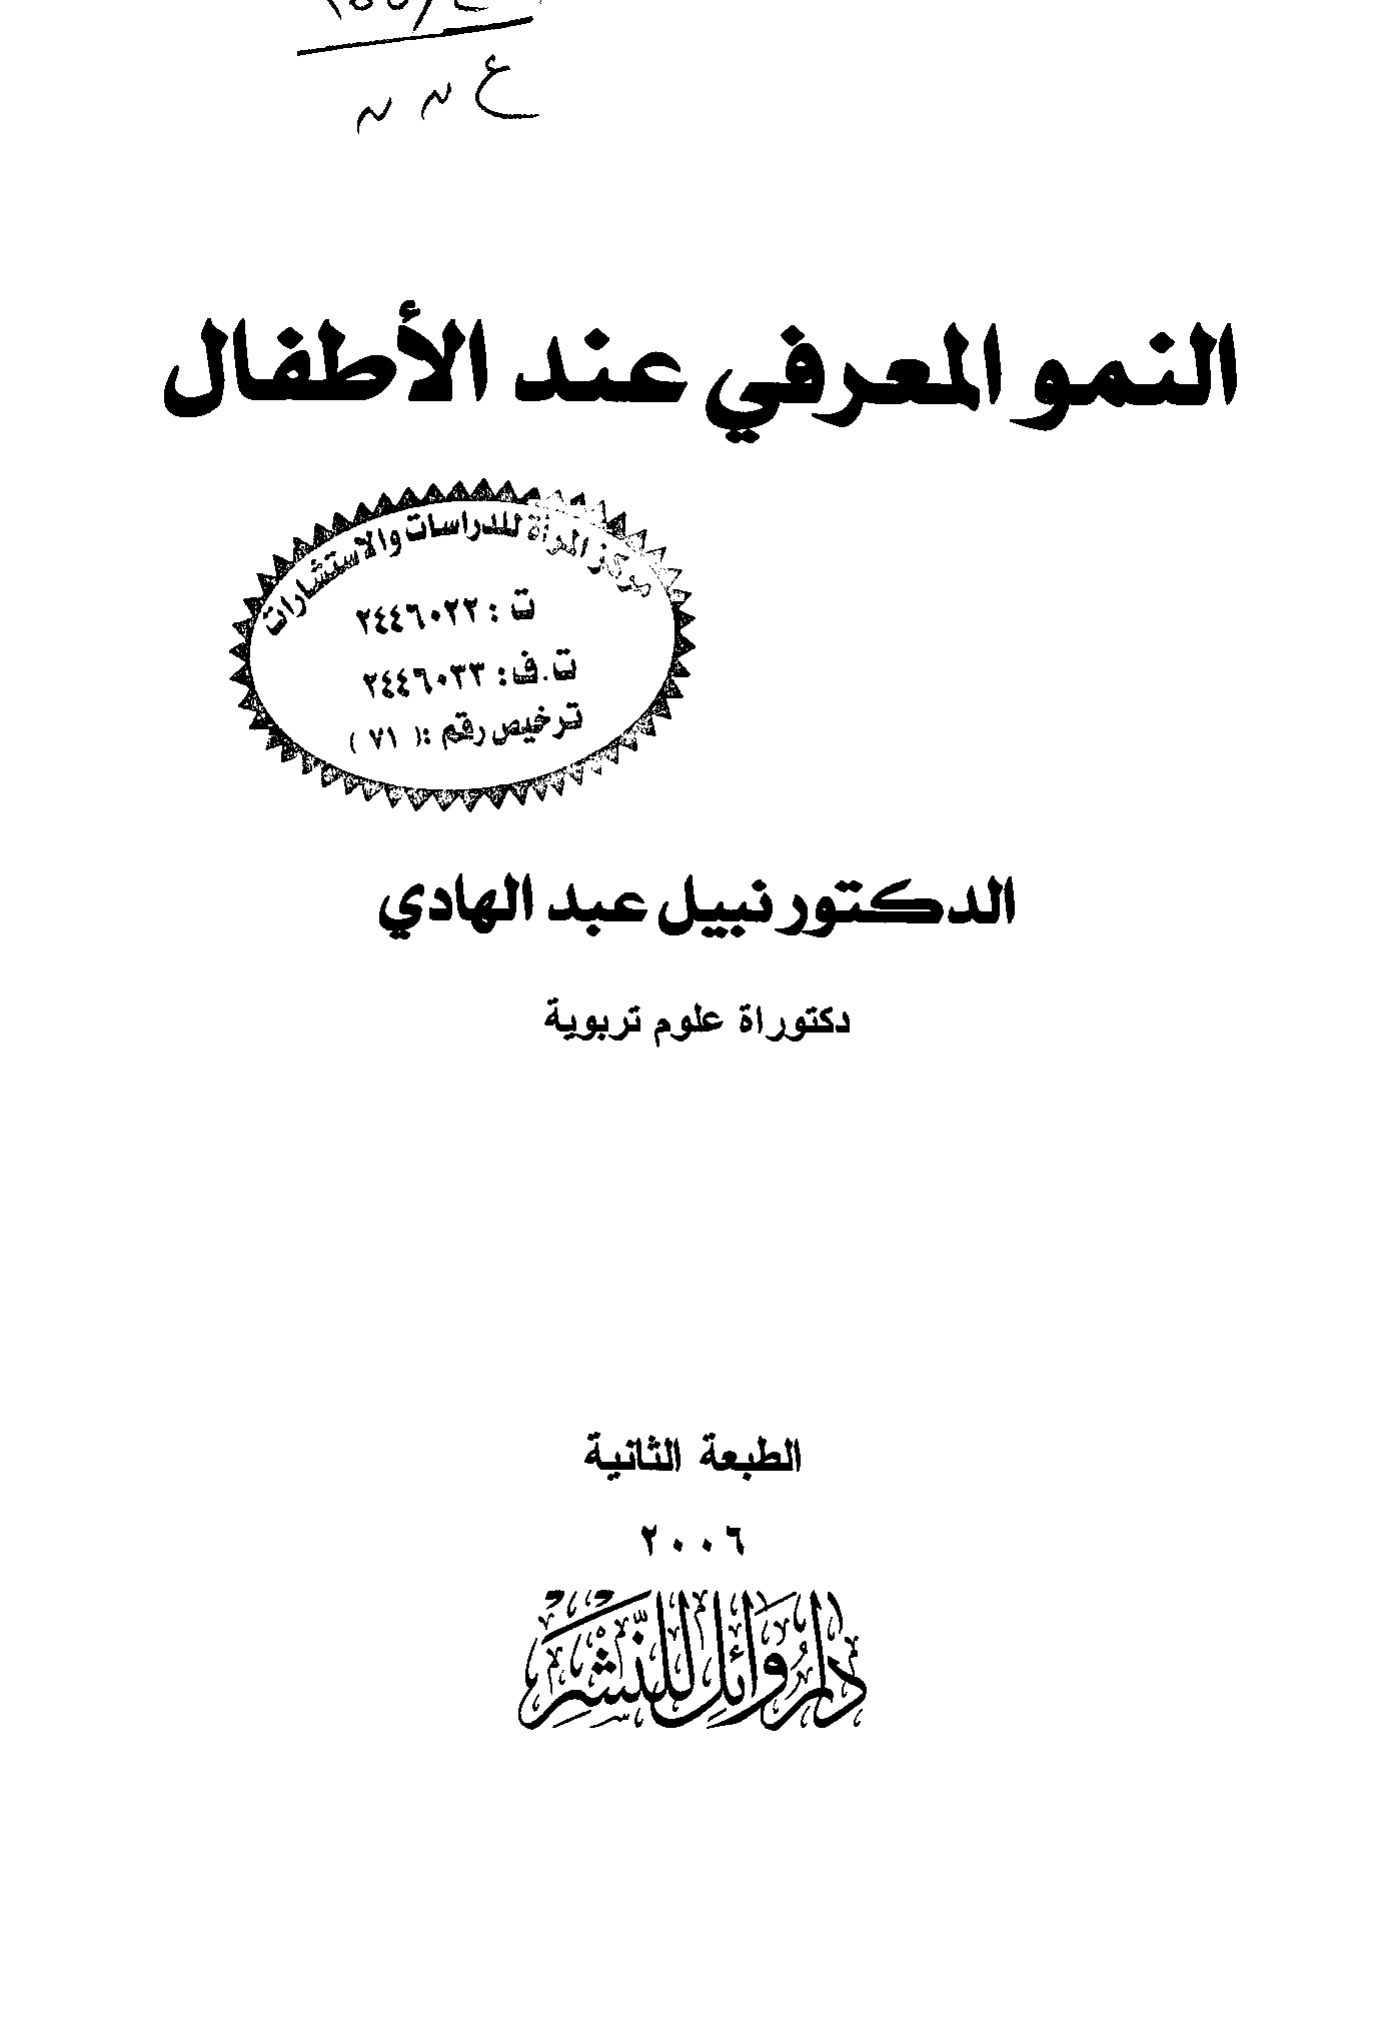 ع ن ن
النمو المعرفي عند الأطفال
مركز المرأة للدراسات والاستشارات
ت : ٢٤٤٦٠٢٢
ت.ف: ٢٤٤٦٠٣٣
ترخيص رقم :( ٧١ )
الدكتور نبيل عبد الهادي
دكتوراة علوم تربوية
الطبعة الثانية
٢٠٠٦
دار وائل للنشر